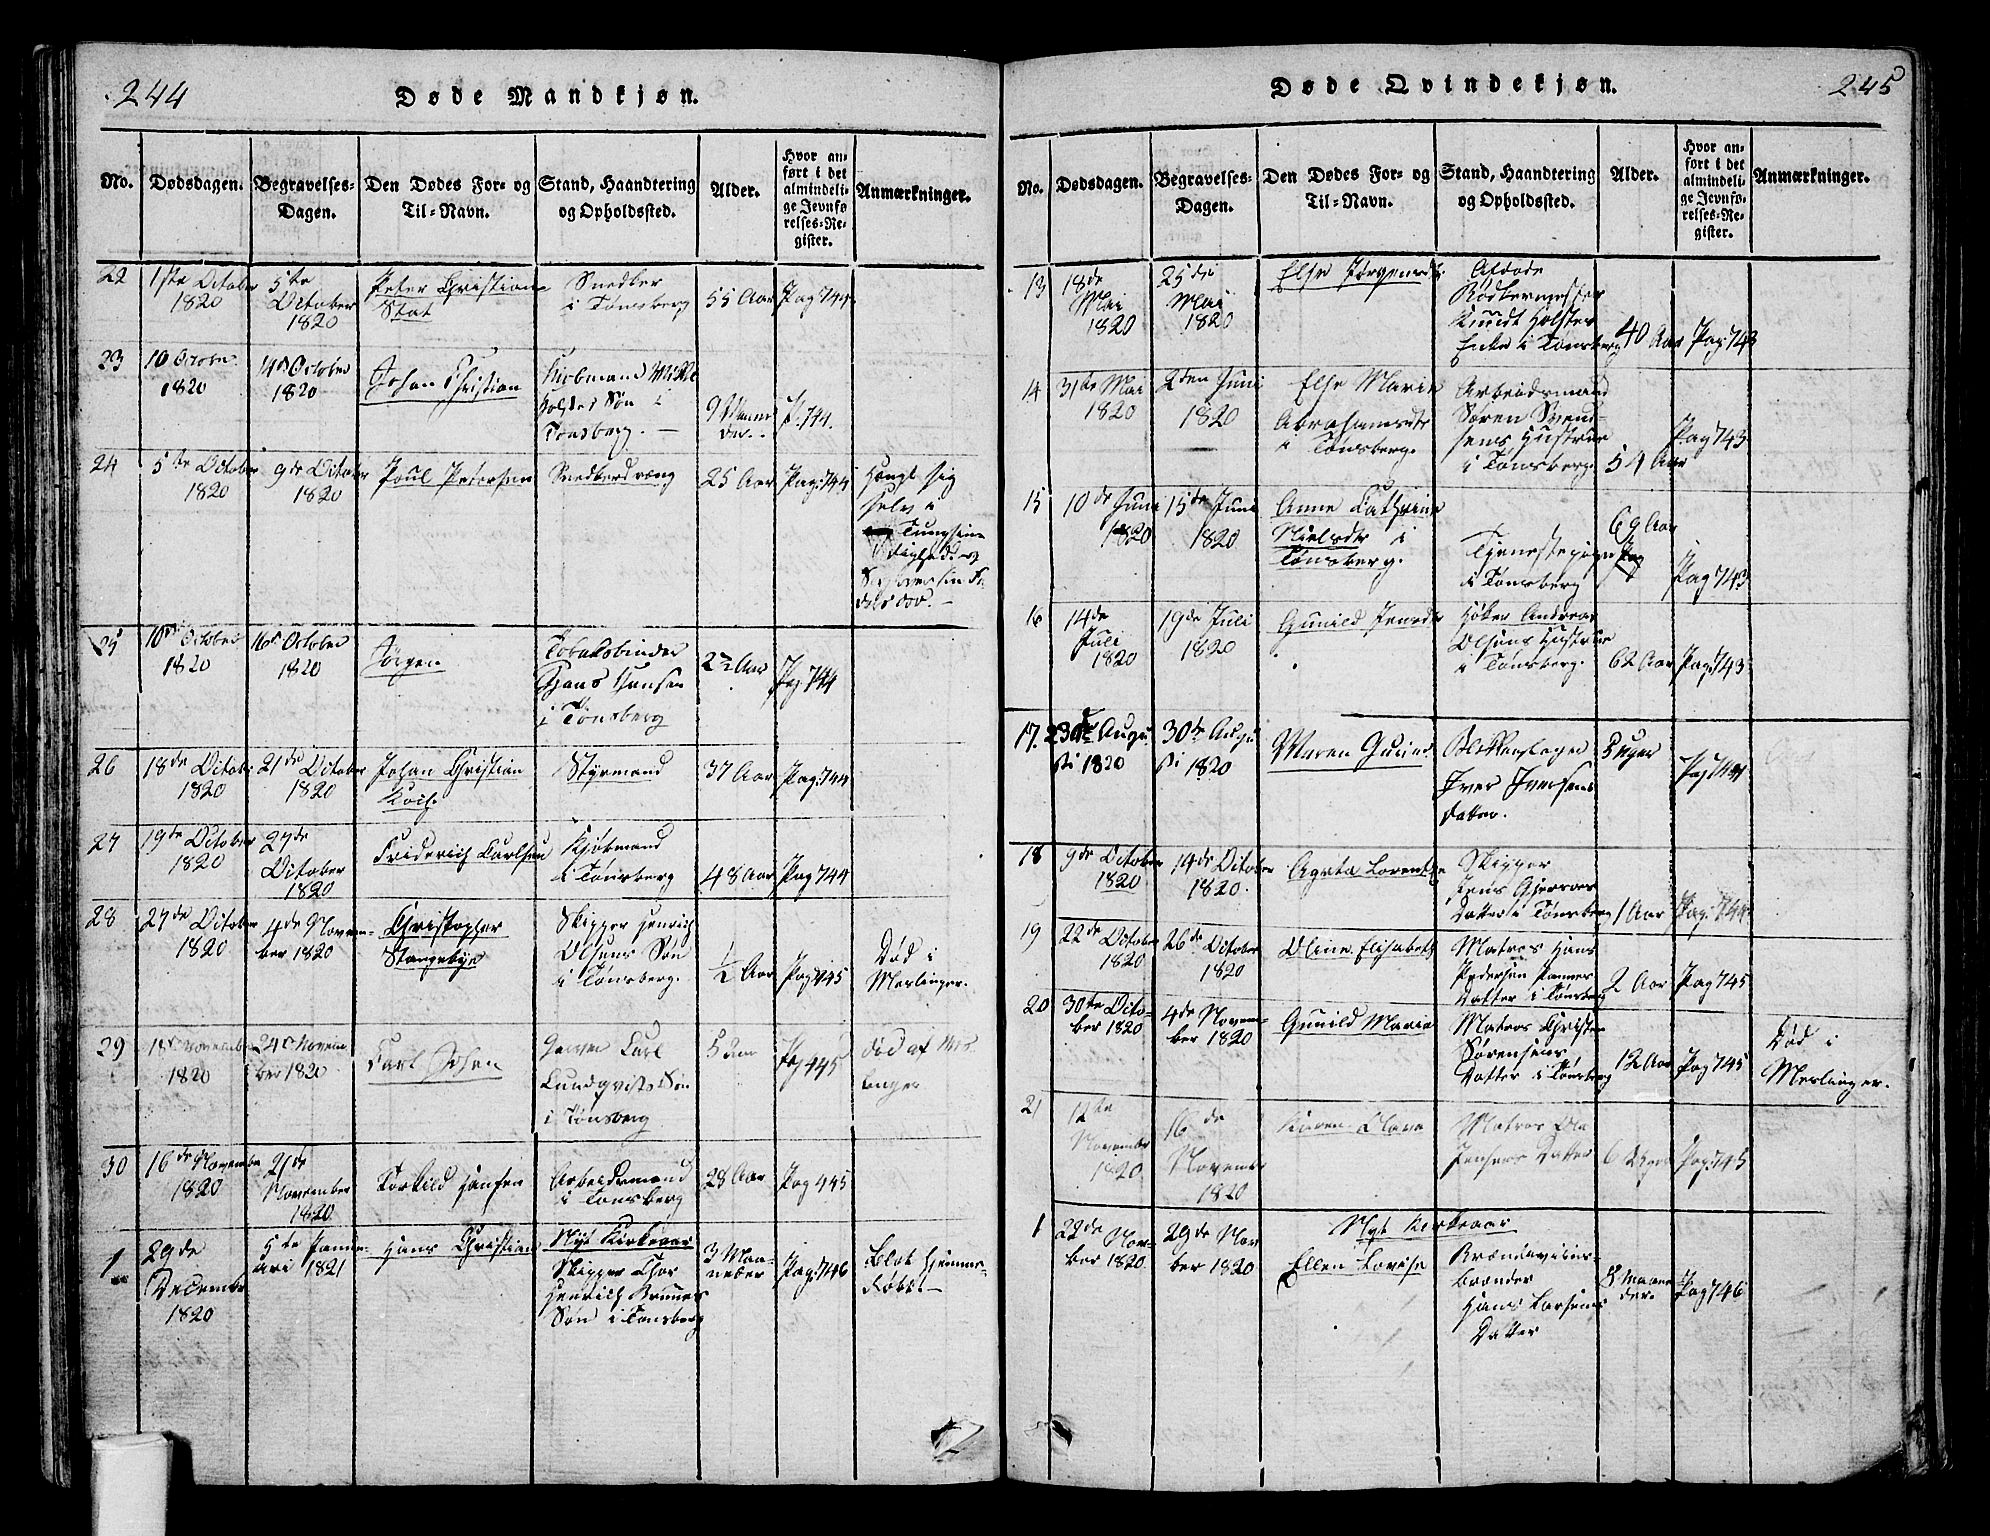 244
Døde Mandkjøn.
No.
Dødsdagen.
Begravelses-
Dagen.
Den Dødes For- og
Til-Navn.
Stand, Haandtering
og Opholdssted.
Alder.
Hvor an-
ført i det
almindeli-
ge Jevnfø-
relses-Re-
gister.
Anmærkninger.
22
1ste October
1820
5te
October
1820
Peter Christian
Stat
Snedker
i Tønsberg
55 Aar
Pag 744
23
10 Octobr
1820
14de October
1820
Johan Christian
Kiøbmand
Holsts Søn i
Tønsberg.
9 Maane
der.
P. 744.
24
5te October
1820
9de October
1820
Poul Petersen
Snedkerdreng
25 Aar
Pag: 744
Hængt sig
selv i
Tungsin-
dighed
25
10de October
1820
16de October
1820
Jørgen
Tobaksbinder
Hans Hansen
i Tønsberg
2½ Aar
Pag 744
26
18de Octobr
1820
21de October
1820
Johan Christian
Koch.
Styrmand
37 Aar
Pag: 744
27
19de October
1820
27de
October
1820
Friderich Carlsen
Kjøbmand
i Tønsberg
48 Aar
Pag 744
28
27de October
1820
4de Novem-
ber 1820
Christopher
Stangebye
Skipper Henrich
Olsens Søn
i Tønsberg.
½ Aar
Pag 745
Død i
Meslinger.
29
18de November
1820
24de Novem
ber 1820
Carl Johan
Carl
Lundqvists Søn
i Tønsberg
Pag 745
død af Mes
linger
30
16de November
1820
21de
November
1820
Torkild Hansen
Arbeidsmand
i Tønsberg
28 Aar
Pag 745
1
29de
December
1820
5te Janu-
ari 1821
Hans Christian
Nyt Kirkeaar
Skipper Thor
Henrich Bruuns
Søn i Tønsberg
3 Maa-
neder
Pag: 746
Blot hjemme-
døbt.
245
Døde Qvindekjøn.
No.
Dødsdagen.
Begravelses-
Dagen.
Den Dødes For- og
Til-Navn.
Stand, Haandtering
og Opholdssted.
Alder.
Hvor an-
ført i det
almindeli-
ge Jevnfø-
relses-Re-
gister.
Anmærkninger.
13
18de
Mai
1820
25de
Mai
1820
Else Jørgensdt.
Afdøde
Bødkermester
Knudt Holster
Enke i Tønsberg
40 Aar
Pag 743
14
31te Mai
1820
2den Juni
1820
Else Marie
Abrahamsdtr
i Tønsberg.
Arbeidsmand
Søren Svend-
sens Hustrue
i Tønsberg.
54 Aar
Pag 743
15
10de Juni
1820
15de Juni
1820
Anne Cathrine
Nielsdtr i
Tønsberg.
Tjenestepige
i Tønsberg
69 Aar
Pag 743
16
14de
Juli
1820
19de Juli
1820
Gunild Jensdtr
Høker Andreas
Olsens Hustrue
i Tønsberg.
62 Aar
Pag: 743
17.
23de Augu
sti 1820
30te Augu
sti 1820
Maren Gurine
Blikkenslager
Iver Iversens
Datter.
8 uger
Pag 744
18
9de October
1820
14de October
1820.
Agata Lorentze
Skipper
Jens Gjersøes
Datter i Tønsberg
1 Aar
Pag: 744
19
22de October
1820
26de October
1820
Oline Elisabeth
Matros Hans
Pedersen
Datter i Tønsberg
2 Aar
Pag 745
20
30te Octo-
ber 1820
4de Novem-
ber 1820
Gunild Marie
Matros Christen
Sørensens
Datter i Tønsberg
12 Aar
Pag 745
Død i
Meslinger.
21
12te
November
1820
16de
November
1820
Karen Olava
Matros Ole
Jensens Datter
6 Uger
Pag: 745
1
22de Nov-
ber 1820
29de Nov
ber 1820
Nyt Kirkeaar
Ellen Lovise
Brændeviins-
brænder
Hans Larsens
Datter
8 Maane
der.
Pag 746